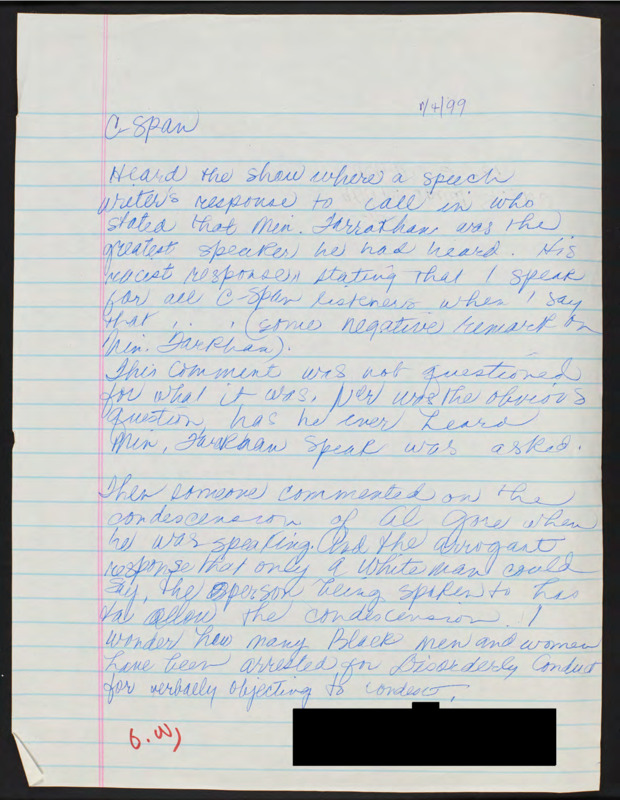 1/4/99
C-Span
Heard the show where a speech
writer's response to call in who
stated that Min. Farrakhan was the
greatest speaker he had heard. His
racist response, stating that I speak
for all C-Span listeners when I say
that . . . (some negative remark on
Min. Farkhan).
This comment was not questioned
for what it was. Nor was the obvious
question, has he ever heard
Min. Farkhan speak was asked.
Then someone commented on the
condescension of Al Gore when
he was speaking. And the arrogant
response that only a white man could
say, the person being spoken to has
to allow the condescension. I
wonder how many Black men and women
have been arrested for Disorderly Conduct
for verbally objecting to